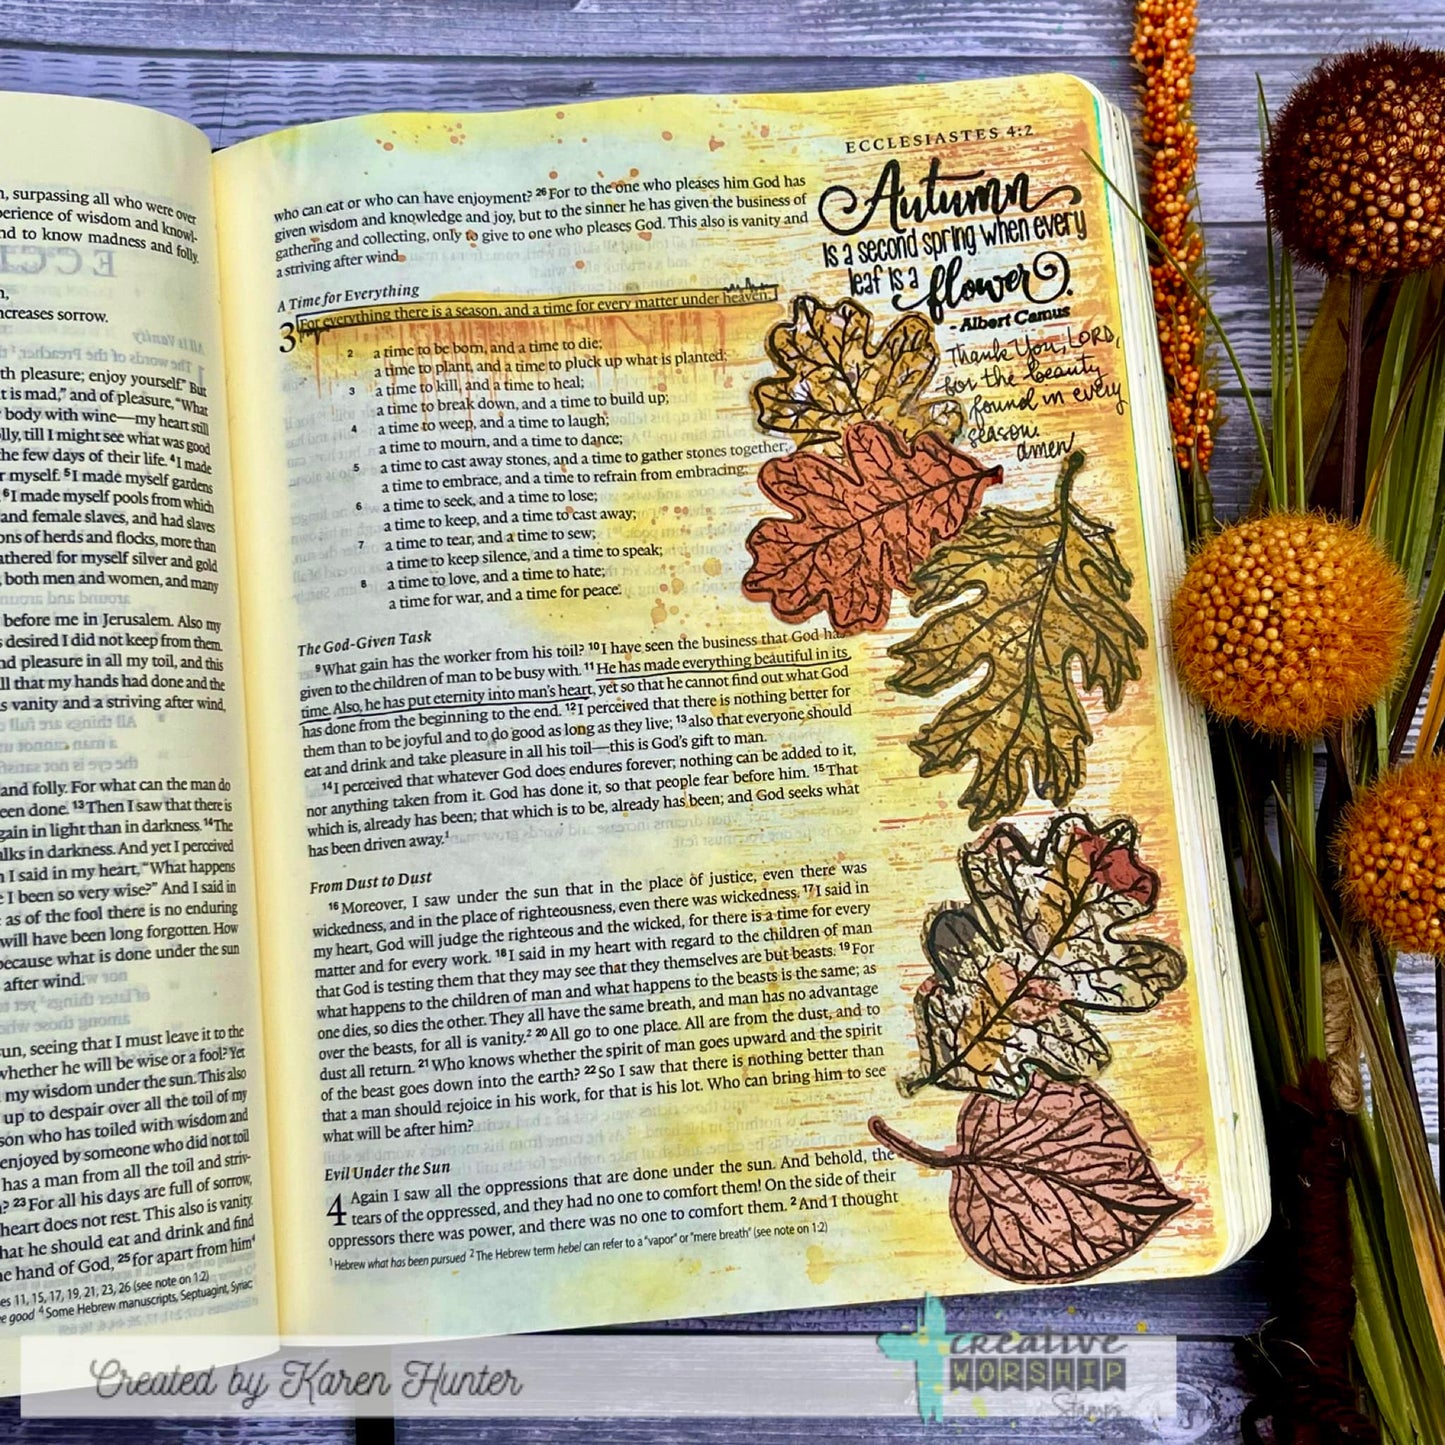 n, surpassing all who were over
perience of wisdom and knowl-
nd to know madness and folly.
n,
ncreases sorrow.
th pleasure; enjoy yourself.” But
t is mad,” and of pleasure, “What
body with wine—my heart still
lly, till I might see what was good
the few days of their life. 4 I made
r myself. 5 I made myself gardens
6 I made myself pools from which
and female slaves, and had slaves
ons of herds and flocks, more than
athered for myself silver and gold
both men and women, and many
before me in Jerusalem. Also my
s desired I did not keep from them.
nd pleasure in all my toil, and this
ll that my hands had done and the
s vanity and a striving after wind,
and folly. For what can the man do
een done. 13 Then I saw that there is
gain in light than in darkness. 14 The
alks in darkness. And yet I perceived
n I said in my heart, “What happens
e I been so very wise?” And I said in
as of the fool there is no enduring
will have been long forgotten. How
because what is done under the sun
after wind.
sun, seeing that I must leave it to the
whether he will be wise or a fool? Yet
my wisdom under the sun. This also
up to despair over all the toil of my
son who has toiled with wisdom and
enjoyed by someone who did not toil
has a man from all the toil and striv-
n? 23 For all his days are full of sorrow,
heart does not rest. This also is vanity.
hat he should eat and drink and find
he hand of God, 25 for apart from him 4
es 11, 15, 17, 19, 21, 23, 26 (see note on 1:2)
e good 4 Some Hebrew manuscripts, Septuagint, Syriac
ECCLESIASTES 4:2
who can eat or who can have enjoyment? 26 For to the one who pleases him God has
given wisdom and knowledge and joy, but to the sinner he has given the business of
gathering and collecting, only to give to one who pleases God. This also is vanity and
a striving after wind.
A Time for Everything
3 For everything there is a season, and a time for every matter under heaven:
2 a time to be born, and a time to die;
a time to plant, and a time to pluck up what is planted;
3 a time to kill, and a time to heal;
a time to break down, and a time to build up;
4 a time to weep, and a time to laugh;
a time to mourn, and a time to dance;
5 a time to cast away stones, and a time to gather stones together;
a time to embrace, and a time to refrain from embracing;
6 a time to seek, and a time to lose;
a time to keep, and a time to cast away;
7 a time to tear, and a time to sew;
a time to keep silence, and a time to speak;
8 a time to love, and a time to hate;
a time for war, and a time for peace.
The God-Given Task
9 What gain has the worker from his toil? 10 I have seen the business that God has
given to the children of man to be busy with. 11 He has made everything beautiful in its
time. Also, he has put eternity into man's heart, yet so that he cannot find out what God
has done from the beginning to the end. 12 I perceived that there is nothing better for
them than to be joyful and to do good as long as they live; 13 also that everyone should
eat and drink and take pleasure in all his toil—this is God's gift to man.
14 I perceived that whatever God does endures forever; nothing can be added to it,
nor anything taken from it. God has done it, so that people fear before him. 15 That
which is, already has been; that which is to be, already has been; and God seeks what
has been driven away.1
From Dust to Dust
16 Moreover, I saw under the sun that in the place of justice, even there was
wickedness, and in the place of righteousness, even there was wickedness. 17 I said in
my heart, God will judge the righteous and the wicked, for there is a time for every
matter and for every work. 18 I said in my heart with regard to the children of man
that God is testing them that they may see that they themselves are but beasts. 19 For
what happens to the children of man and what happens to the beasts is the same; as
one dies, so dies the other. They all have the same breath, and man has no advantage
over the beasts, for all is vanity.2 20 All go to one place. All are from the dust, and to
dust all return. 21 Who knows whether the spirit of man goes upward and the spirit
of the beast goes down into the earth? 22 So I saw that there is nothing better than
that a man should rejoice in his work, for that is his lot. Who can bring him to see
what will be after him?
Evil Under the Sun
4 Again I saw all the oppressions that are done under the sun. And behold, the
tears of the oppressed, and they had no one to comfort them! On the side of their
oppressors there was power, and there was no one to comfort them. 2 And I thought
1 Hebrew what has been pursued 2 The Hebrew term hebel can refer to a “vapor” or “mere breath” (see note on 1:2)
Autumn
is a second spring when every
leaf is a flower.
- Albert Camus
Thank You, LORD,
for the beauty
found in every
season.
amen
Created by Karen Hunter
creative
WORSHIP
Stamps